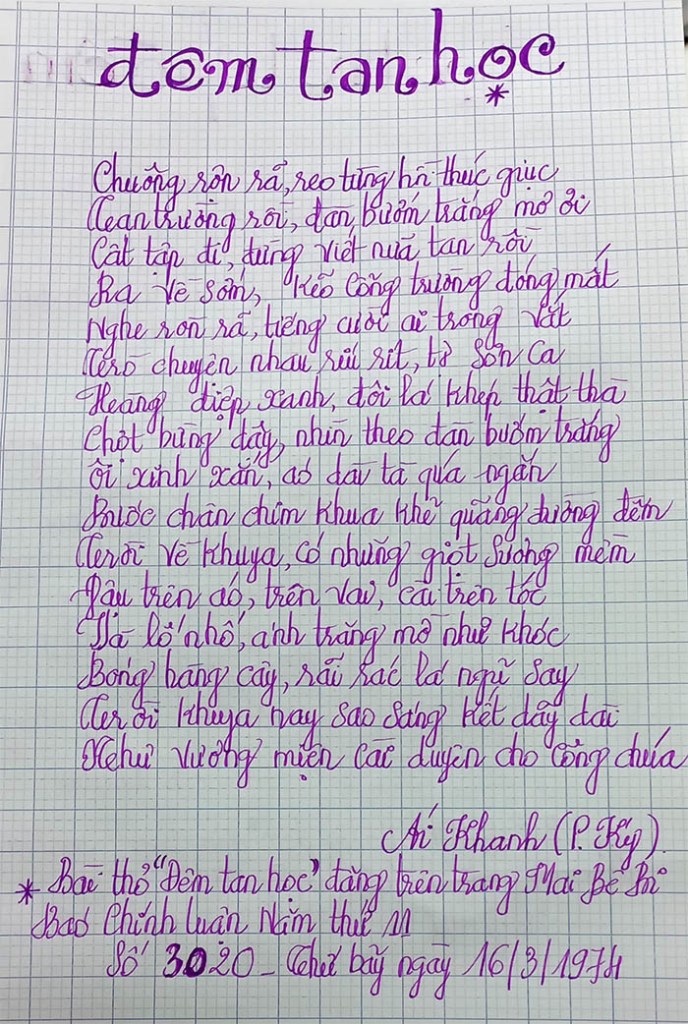 đêm tan học
*
Chuông rộn rã, reo từng hồi thúc giục
Tan trường rồi, đàn bướm trắng mơ ơi
Cất tập đi, đừng viết nữa tan rồi
Ra về sớm, kẻo cổng trường đóng mất
Nghe ròn rã, tiếng cười ai trong vắt
Trò chuyện nhau ríu rít, tợ Sơn Ca
Hoàng điệp xanh, đôi lá khép thật thà
Chợt bừng dậy, nhìn theo đàn bướm trắng
Ôi xinh xắn, áo dài tà quá ngắn
Bước chân chim khua khẽ quãng đường đêm
Trời về khuya, có những giọt sương mềm
Đậu trên áo, trên vai, cài trên tóc
Đá lố nhố, ánh trăng mờ như khóc
Bóng hàng cây, rải rác lá ngủ say
Trời khuya nay sao sáng kết dãy dài
Như vương miện cài duyên cho công chúa
Ái Khanh (P. Ký)
* Bài thơ "Đêm tan học" đăng trên trang Mai Bê Bi
Báo Chính luận Năm thứ 11
Số 3020 - Thứ bảy ngày 16/3/1974